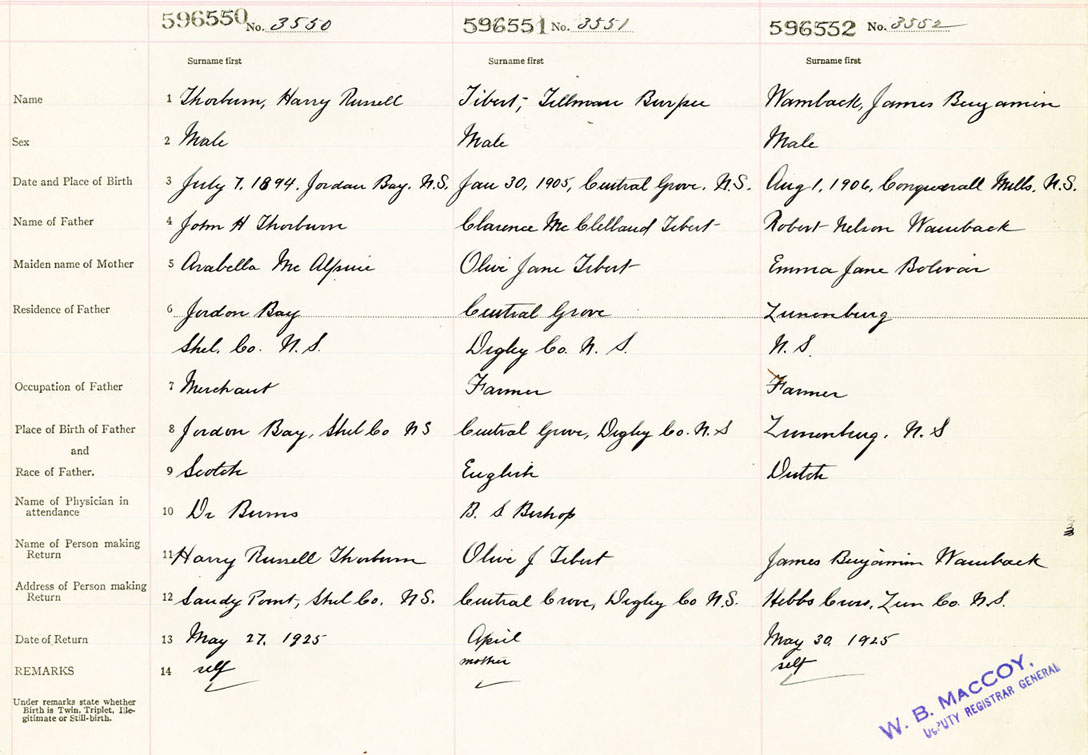 596550 No. 3550 596551 No. 3551 596552 No. 3552
Surname first Surname first Surname first
Name 1 Thorburn, Harry Russell Tibert, Tillman Burpee Wamback, James Benjamin
Sex 2 Male Male Male
Date and Place of Birth 3 July 7, 1894. Jordan Bay. N.S. Jan 30, 1905, Central Grove. N.S. Aug 1, 1906, Conquerall Mills. N.S.
Name of Father 4 John H Thorburn Clarence McClelland Tibert Robert Nelson Wamback
Maiden name of Mother 5 Arabella McAlpine Olive Jane Tibert Emma Jane Bolivar
Residence of Father 6 Jordon Bay Central Grove Lunenburg
Shel. Co. N.S. Digby Co. N. S. N. S.
Occupation of Father 7 Merchant Farmer Farmer
Place of Birth of Father 8 Jordon Bay, Shel Co NS Central Grove, Digby Co. N.S Lunenburg. N.S
and
Race of Father. 9 Scotch English Dutch
Name of Physician in
attendance 10 Dr Burns B. S Bishop
Name of Person making
Return 11 Harry Russell Thorburn Olive J Tibert James Benjamin Wamback
Address of Person making
Return 12 Sandy Point, Shel Co. N.S. Central Grove, Digby Co N.S. Hebbs Cross, Lun Co. N.S.
Date of Return 13 May 27. 1925 April May 30, 1925
REMARKS 14 self mother self
Under remarks state whether
Birth is Twin, Triplet, Ille-
gitimate or Still-birth.
W. B. MACCOY,
DEPUTY REGISTRAR GENERAL